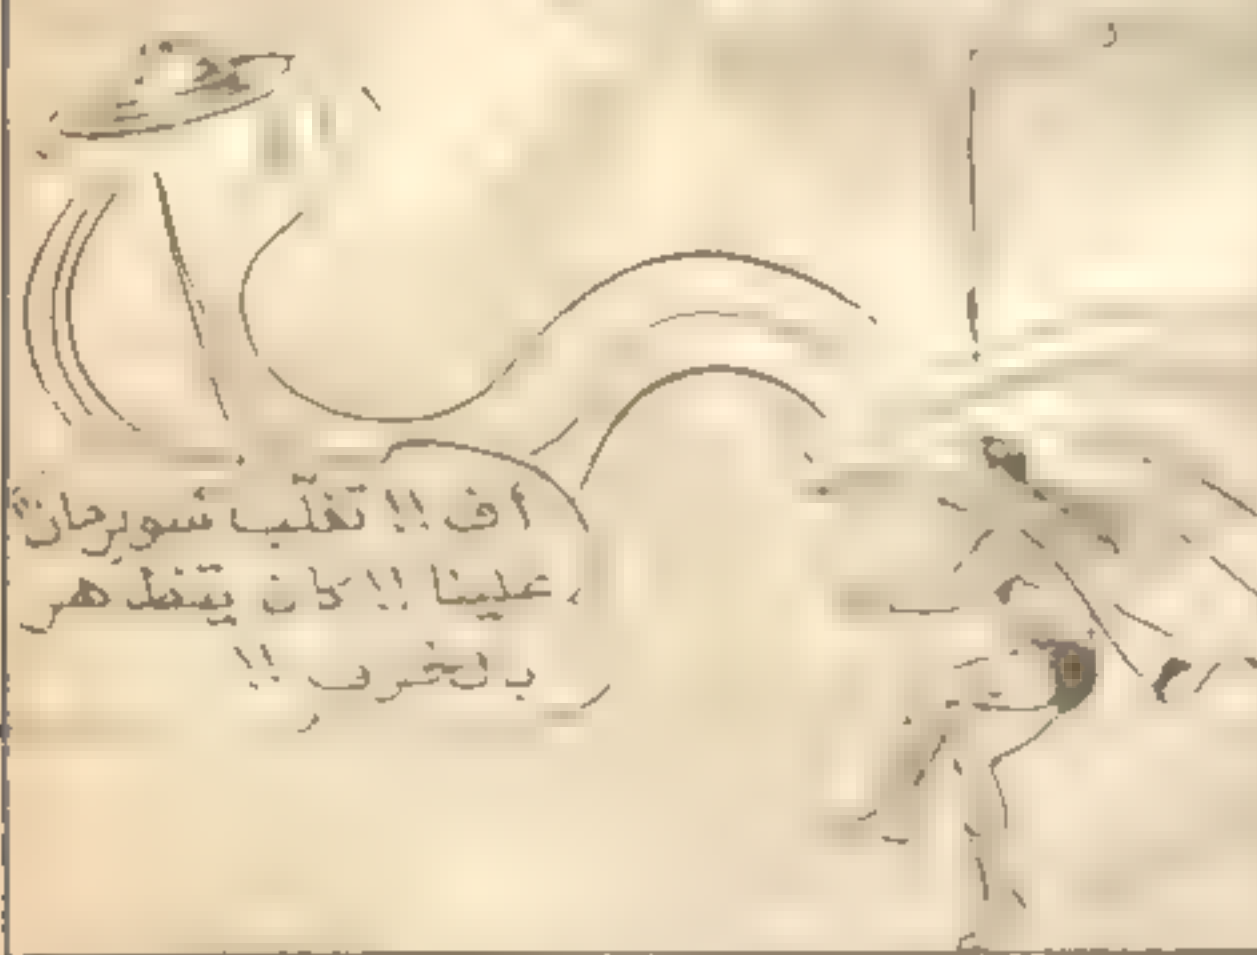 أف !! تغلّب سوبرمان
علينا !! كان يتظاهر
بالخوف !!